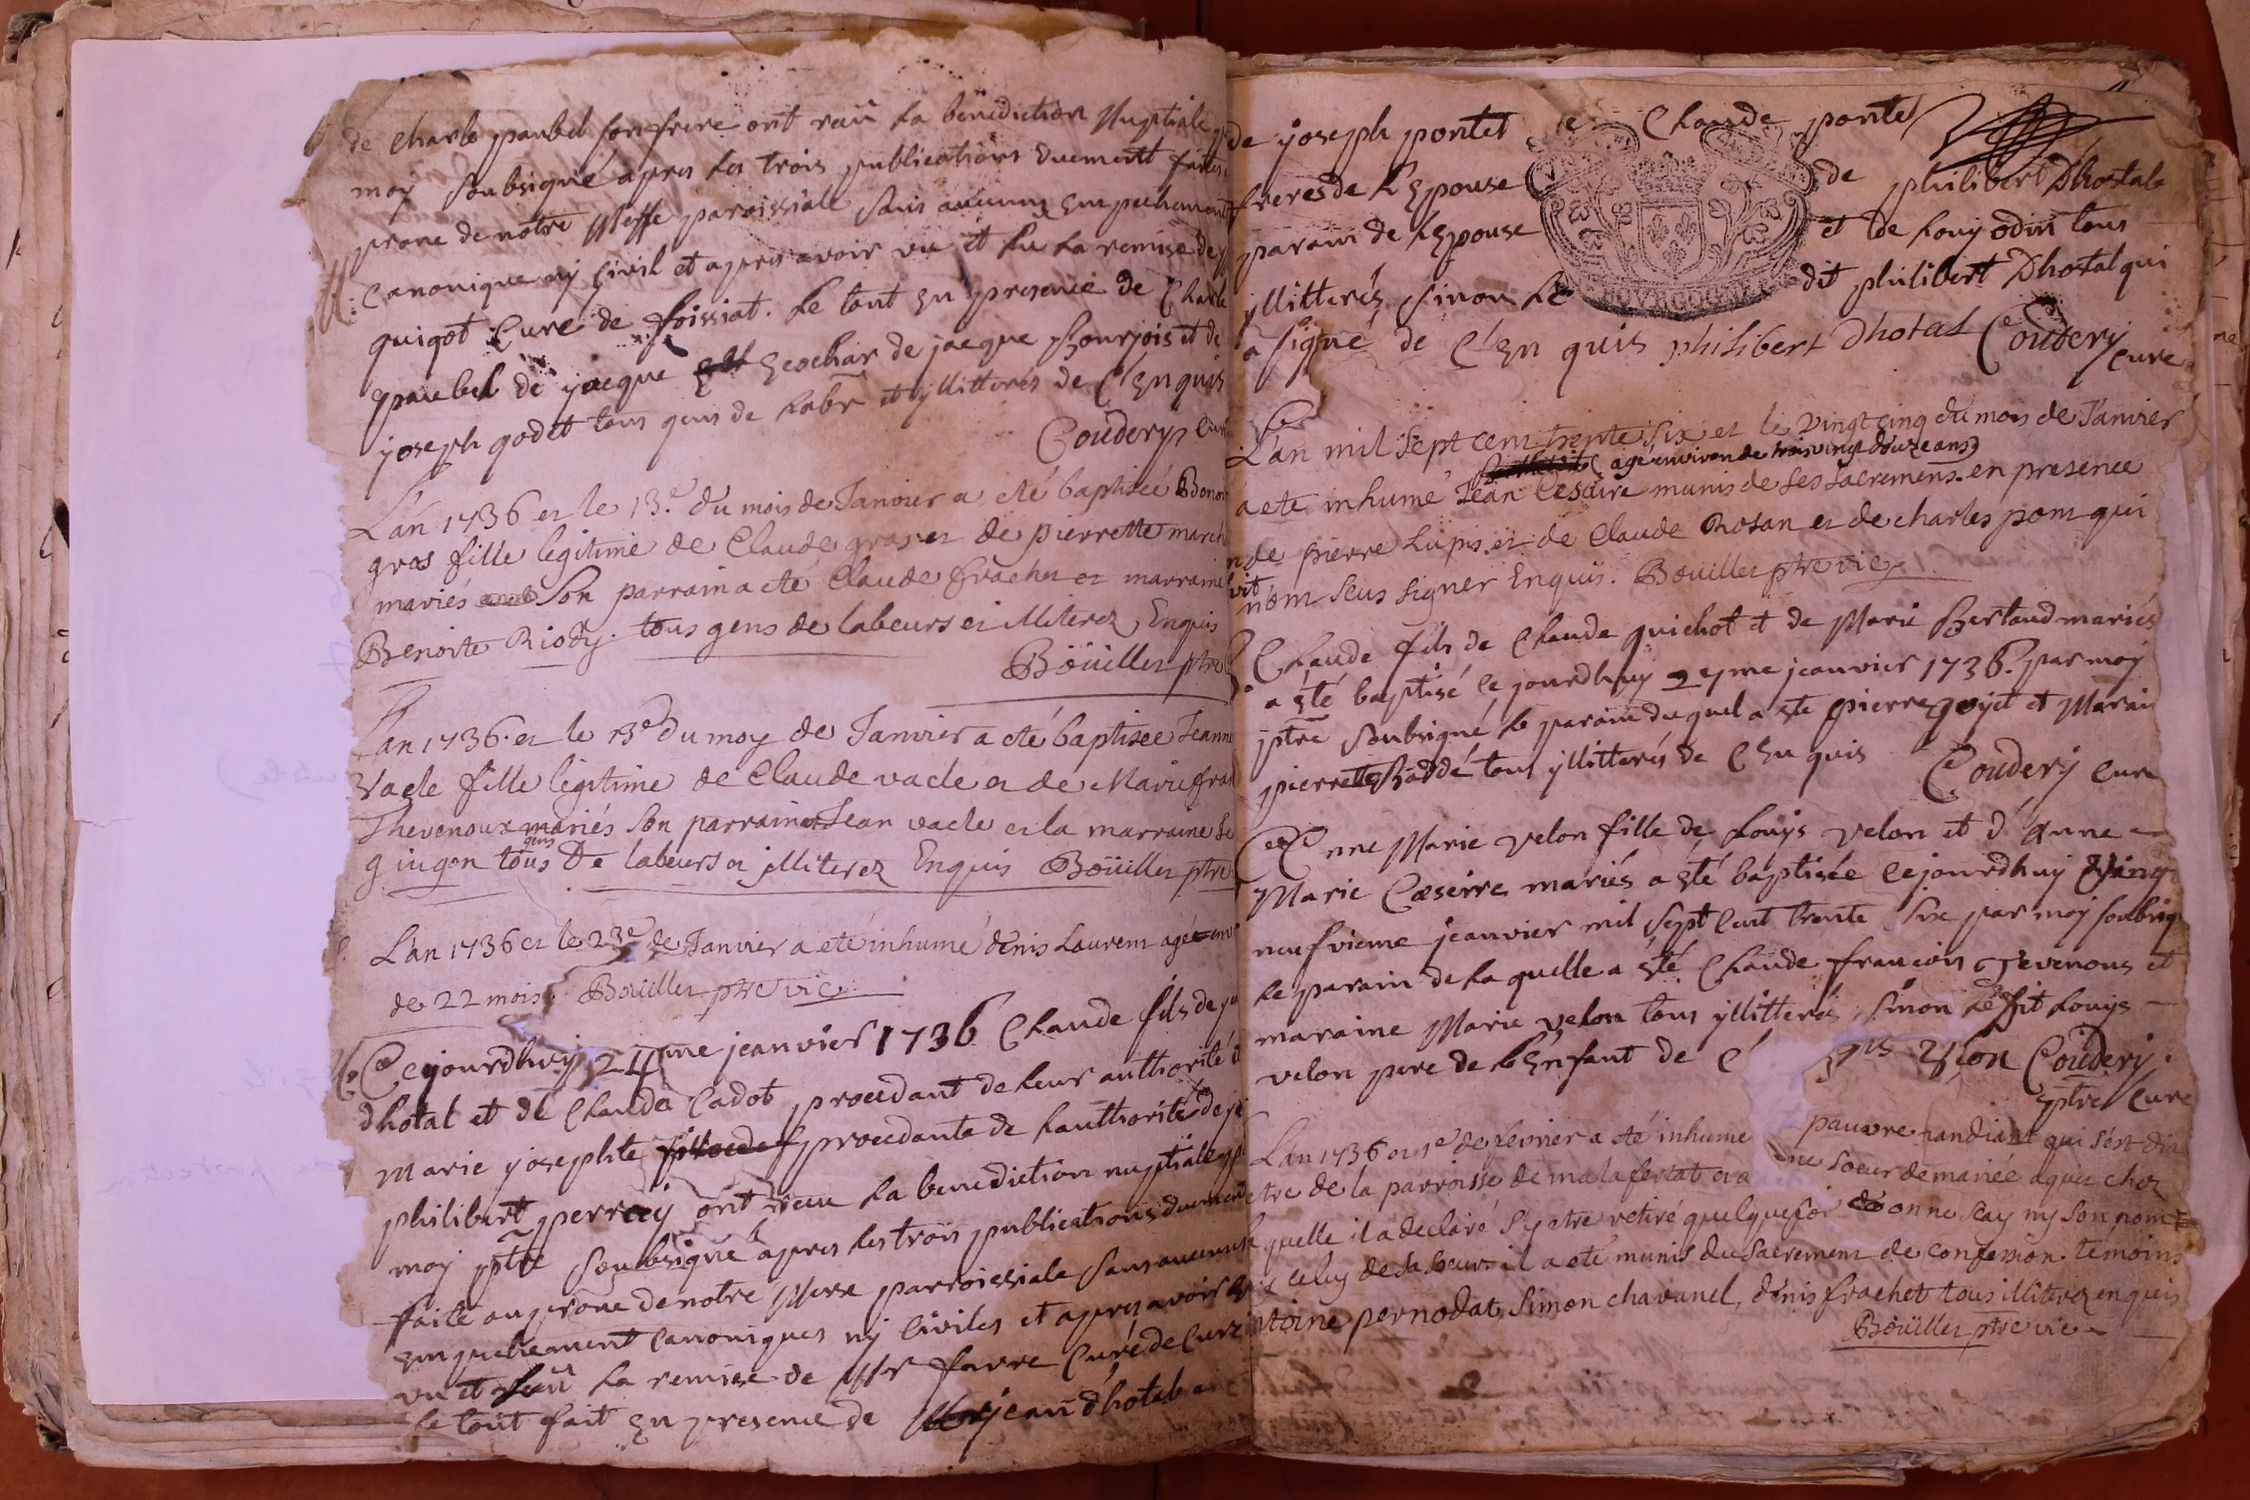 de Charle paubel son frere ont recu la benediction Nuptiale
moy soubsigné apres les trois publications duement faites
prone de notre Messe paroissiale sans aucuns Empechement
canonique ny civil et apres avoir vu et lu la remise de
guigot Curé de foissiat. le tout en presence de Charle
paubel de jacque Escochar de jacque Bourjois et de
joseph godet tous gens de labr et yllitterés de C Enquis
Coudery curé
L'an 1736 et le 13.e du mois de Janvier a eté baptisée Benoi
gros fille legitime de Claude gros et de pierrette march
mariés Son parrain a eté Claude frachet et marraine
Benoite Riody. tous gens de labeurs et illiterez Enquis
Boüiller ptre
Lan 1736. et le 13e du moy de Janvier a eté baptisee Jeanne
Vacle fille legitime de Claude vacle et de Marie fran
Thevenoux mariés Son parrain Jean vacle et la marraine
gingon tous gens de labeurs et illiterez Enquis Boüiller ptre
L'an 1736 et le 23e de Janvier a eté inhumé denis Laurent agé
de 22 mois. Boüiller ptre vic.
Ce jourdhuy 24me jeanvier 1736 Claude fils de
dhotal et de Claude Cadot procedant de leur authorité
Marie josephte procedante de lauthorité de
philibert perray ont recu la benediction nuptiale
moy ptre soubsigné apres les trois publications duement
faite au prone de notre Messe parroissiale sans aucuns
empechement canoniques ny civiles et apres avoir
vu et la remise de Mr favre Curé de Curt
le tout fait en presence de jean dhotal
de joseph pontet de Claude pontet
freres de l'Epouse de philibert Dhostal
parain de l'Epouse et de Louy odin tous
yllitterés sinon le dit philibert Dhostal qui
a signé de C Enquis philibert Dhotal Coudery
curé
L'an mil sept cent trente six et le vingt cinq du mois de Janvier
(agé environ de trois vingt douze ans)
a eté inhumé Jean Cesaire munis de ses sacremens. en presence
de pierre Lupis et de Claude Rosan et de charles pont qui
n'ont seus signer Enquis. Boüiller ptre vic.
Claude fils de Claude guichot et de Marie Bertaud mariés
a eté baptisé ce jourdhuy jeanvier 1736. par moy
ptre soubsigné le parain duquel a ete pierre goyet et Marain
pierrette tous yllitterés de C Enquis Coudery curé
Anne Marie velon fille de Louys velon et d'Anne
Marie Cæserre mariés a eté baptisée ce jourdhuy Vingt
neufvieme jeanvier mil sept cent trente six par moy soubsig
le parain de la quelle a eté Claude francois Tevenous et
maraine Marie velon tous yllitterés sinon le dit Louys
velon pere de l'Enfant de C velon Coudery
ptre Curé
L'an 1736 et 1e de fevrier a eté inhumé pauvre mandiant qui s'est dit
etre de la parroisse de malafertat et a une soeur demariée a quet chez
quelle il a declaré s'y etre retiré quelquefois on ne scay ny son nom
celuy de sa soeur il a eté munis du Sacrement de confession. temoins
toine pernodat, Simon chavanel, denis frachet tous illiterez enquis
Boüiller ptre vic